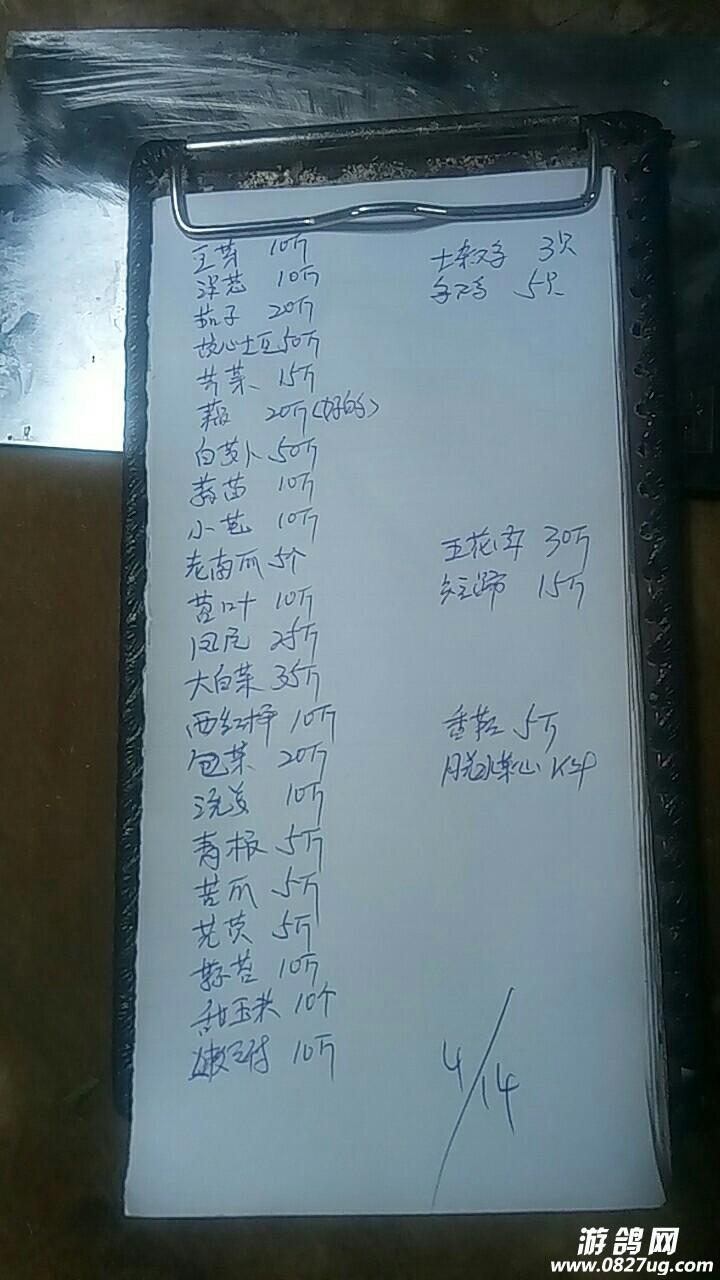 豆芽 10斤
洋芫 10斤
茄子 20斤
黄心土豆 50斤
芹菜 15斤
藕 20斤(好的)
白萝卜 50斤
蒜苗 10斤
小芫 10斤
老南瓜 5个
苕叶 10斤
凤尾 25斤
大白菜 35斤
西红柿 10斤
包菜 20斤
青椒 5斤
苦瓜 5斤
蒜苔 10斤
甜玉米 10个
嫩豆付 10斤
土杂鸡 3只
母鸡 5只
五花肉 30斤
15斤
香菇 5斤
脱水菜心
4/14
游鸽网
www.0827ug.com